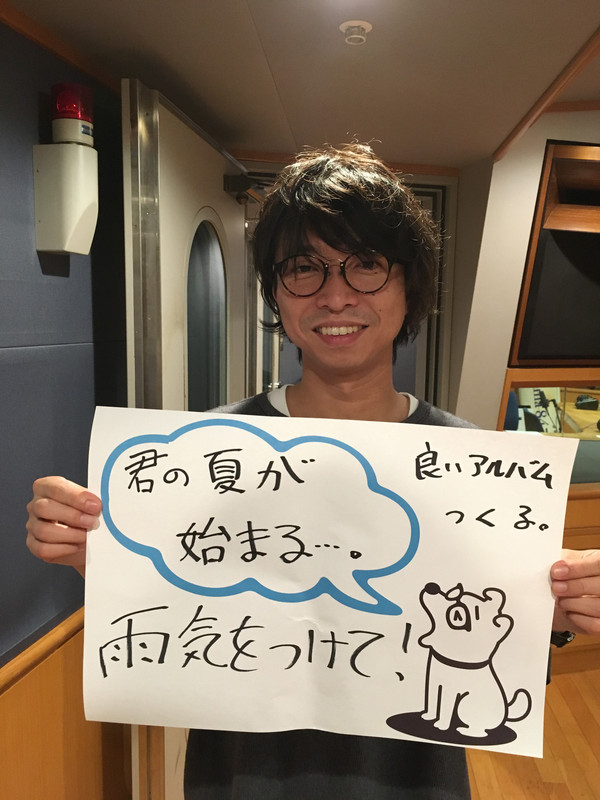 君の夏が
始まる…。
良いアルバム
つくる。
雨気をつけて!